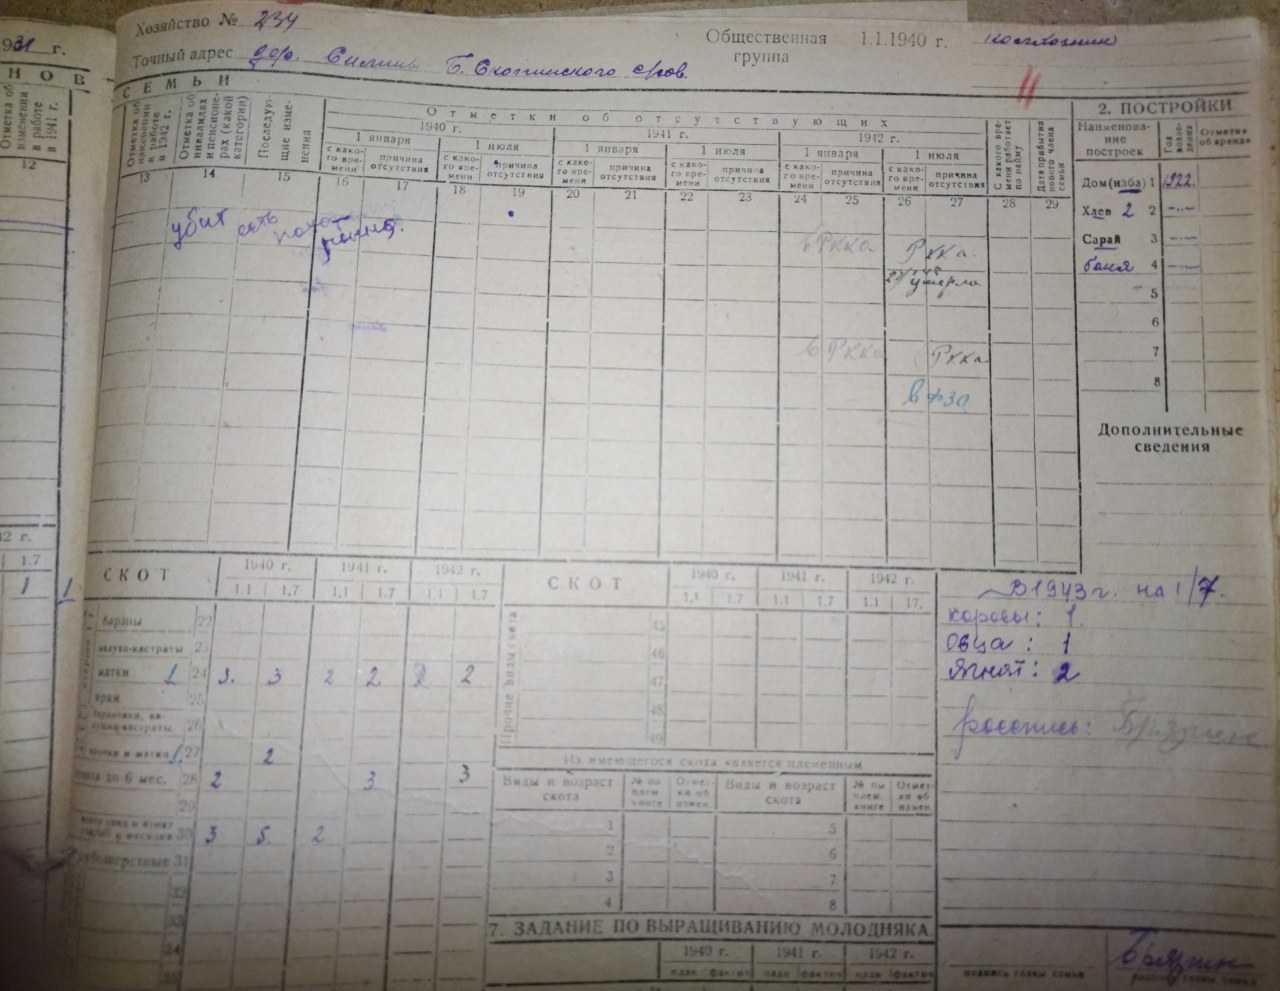 1931 г.
Хозяйство № 234
Общественная группа 1.1.1940 г. колхозник
Точный адрес дер. Б. Скопинского с/сов.
НОВ
СЕМЬИ
11
Отметка об изменении в работе в 1941 г.
Отметка об изменении в работе в 1942 г.
Отметка об инвалидах и пенсионерах (какой категории)
Последующие изменения
Отметки об отсутствующих
1940 г. 1941 г. 1942 г.
1 января 1 июля 1 января 1 июля 1 января 1 июля
с какого времени причина отсутствия с какого времени причина отсутствия с какого времени причина отсутствия с какого времени причина отсутствия с какого времени причина отсутствия с какого времени причина отсутствия
С какого времени работает по найму
Дата прибытия нового члена семьи
12 13 14 15 16 17 18 19 20 21 22 23 24 25 26 27 28 29
убит есть
в РККА РККА
умерла
в РККА РККА
в ФЗО
2. ПОСТРОЙКИ
Наименование построек Год возведения Отметка об аренде
Дом (изба) 1 1922.
Хлев 2 2 -"-
Сарай 3 -"-
баня 4
5
6
7
8
Дополнительные сведения
2 г.
1.7
1 1
СКОТ 1940 г. 1941 г. 1942 г.
1.1 1.7 1.1 1.7 1.1 1.7
бараны 22
валухи-кастраты 23
матки 1 24 3. 3 2 2 2 2
ярки 25
26
ярочки и матки 1 27 2
до 6 мес. 28 2 3 3
29
30 3 5. 2
31
32
33
34
35
СКОТ 1940 г. 1941 г. 1942 г.
1.1 1.7 1.1 1.7 1.1 17.
Прочие виды скота
45
46
47
48
49
Из имеющегося скота является племенным
Виды и возраст скота № по плем. книге Отметки об измен. Виды и возраст скота № по плем. книге Отметки об измен.
1 5
2 6
3 7
4 8
7. ЗАДАНИЕ ПО ВЫРАЩИВАНИЮ МОЛОДНЯКА
1940 г. 1941 г. 1942 г.
план фактич план фактич план фактич
В 1943 г. на 1/7.
коровы: 1.
Овца: 1
Ягнят: 2
роспись:
подпись главы семьи